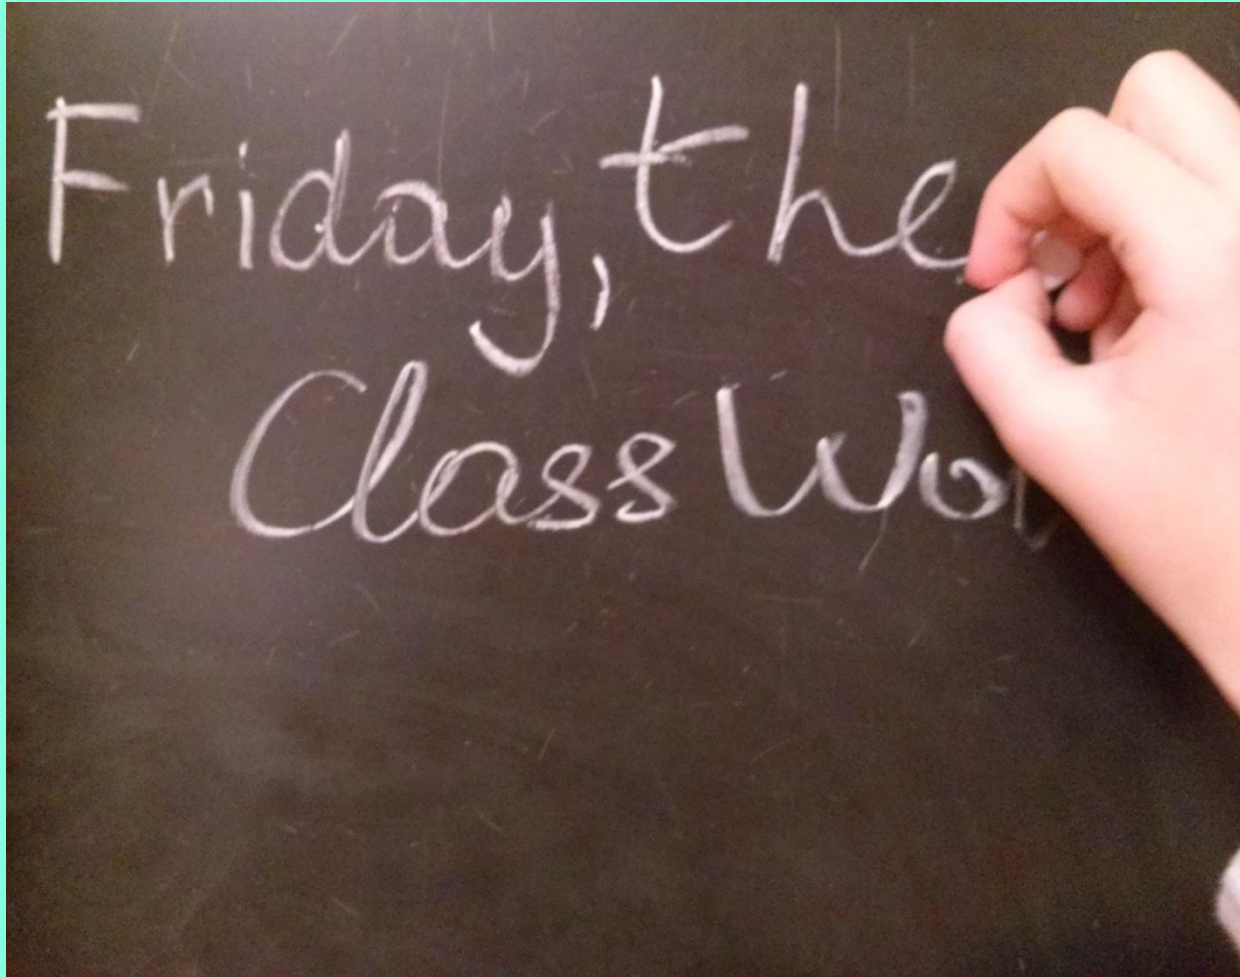 Friday, the
Class